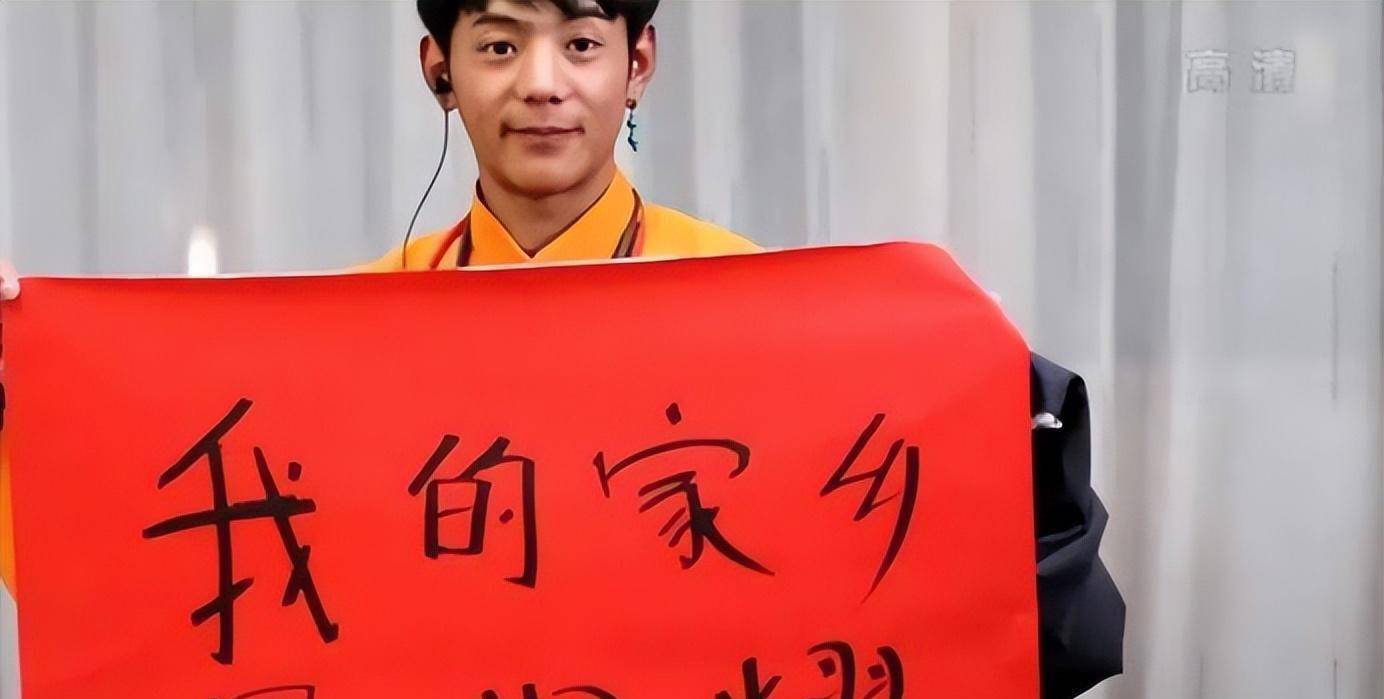 高清
我的家乡